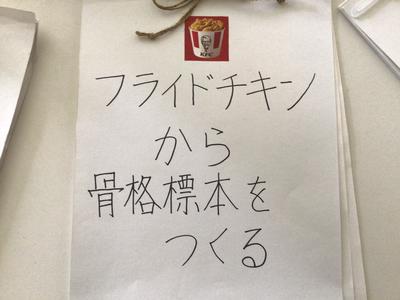 KFC
フライドチキン
から
骨格標本を
つくる